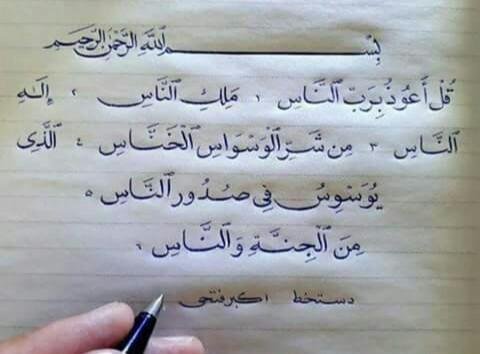 بِسْمِ اللَّهِ الرَّحْمٰنِ الرَّحِيمِ
قُلْ أَعُوذُ بِرَبِّ النَّاسِ ١ مَلِكِ النَّاسِ ٢ إِلَٰهِ
النَّاسِ ٣ مِن شَرِّ الْوَسْوَاسِ الْخَنَّاسِ ٤ الَّذِى
يُوَسْوِسُ فِى صُدُورِ النَّاسِ ٥
مِنَ الْجِنَّةِ وَالنَّاسِ ٦
دستخط اکبر فتحی